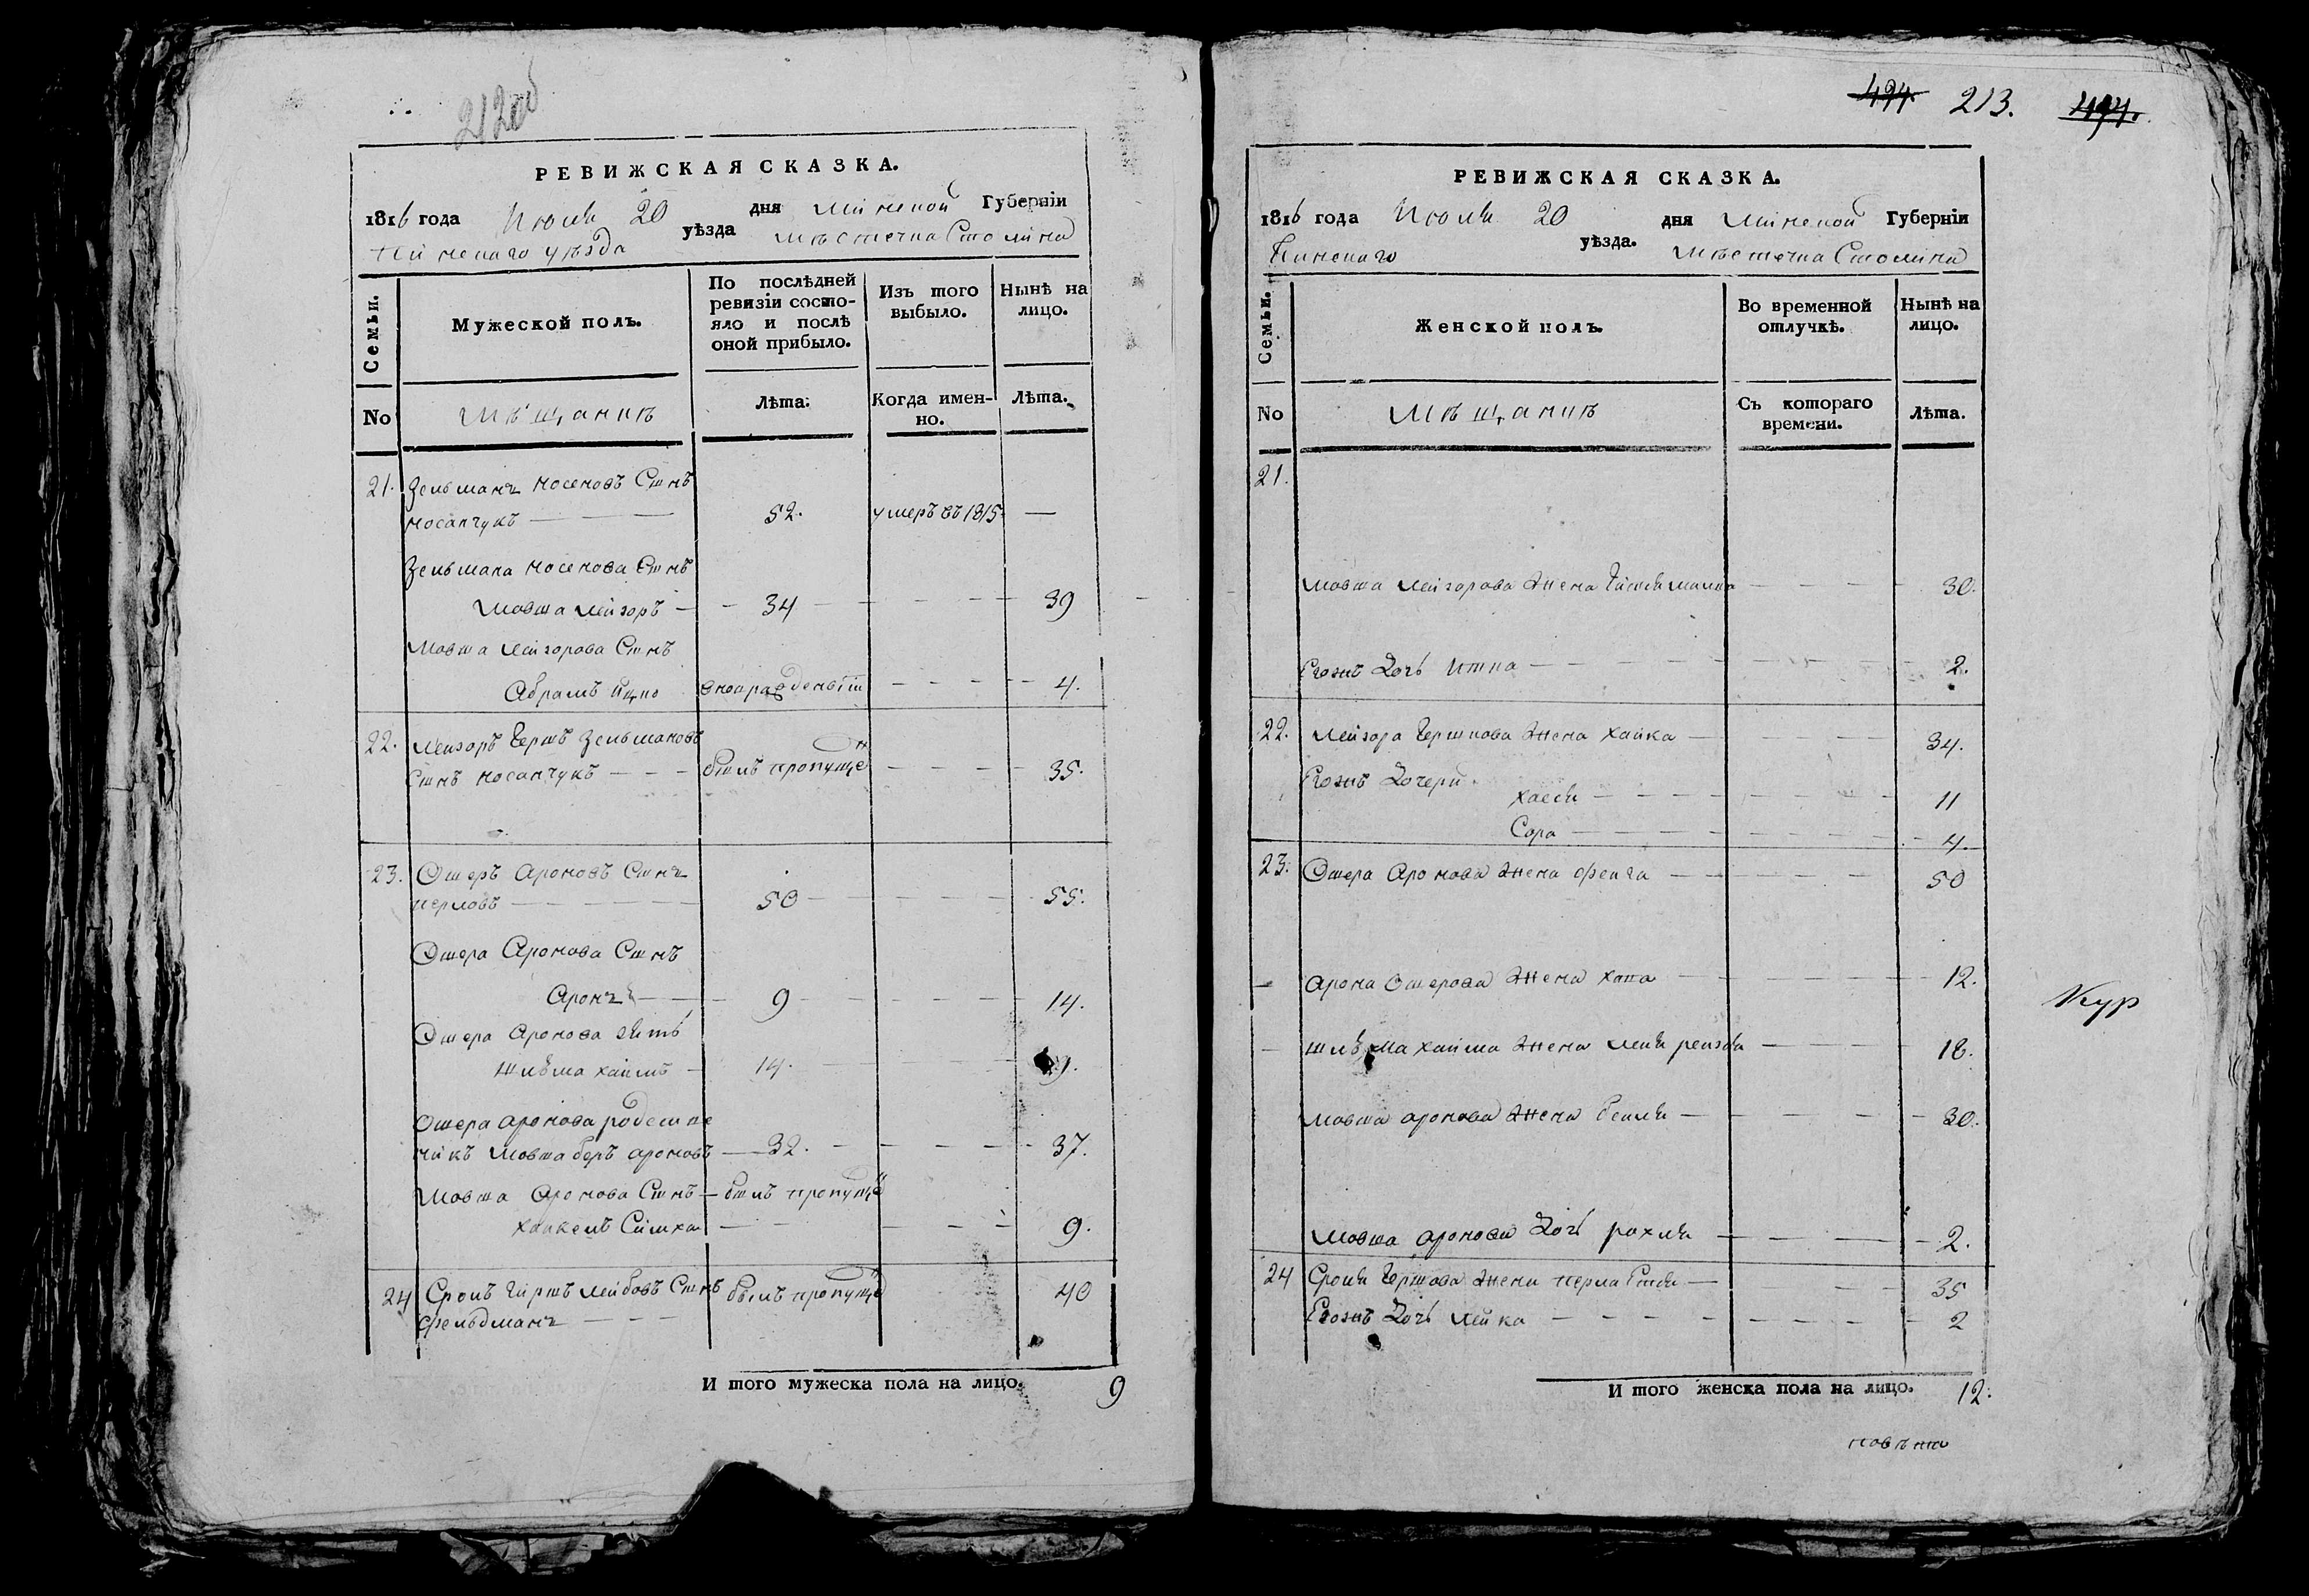 212об
РЕВИЖСКАЯ СКАЗКА.
1816 года Июля 20 дня Минской Губерніи
Пинскаго уѣзда уѣзда мѣстечка Столина
Семьи.
Мужеской полъ.
По послѣдней ревизіи состо-
яло и послѣ
оной прибыло.
Изъ того
выбыло.
Нынѣ на
лицо.
No
Мѣщанинъ
Лѣта.
Когда имен-
но.
Лѣта.
21. Зельманъ Носоновъ Сынъ
Носанчукъ — 52. умеръ въ 1815 —
Зельмана Носонова Сынъ
Мовша Лейзоръ — 34 — 39
Мовша Лейзорова Сынъ
Абрамъ Ицко новорожденный — 4.
22. Лейзоръ Гершъ Зельмановъ
Сынъ Носанчукъ — былъ пропущен — 35.
23. Ошеръ Ароновъ Сынъ
Перловъ — 50 — 55.
Ошера Аронова Сынъ
Аронъ — 9 — 14.
Ошера Аронова зять
Шлѣма Хаимъ — 14. — 19.
Ошера Аронова родствен
никъ Мовша Беръ Ароновъ — 32. — 37.
Мовша Аронова Сынъ — былъ пропущен
Симха — 9.
24 Сроль Гиршъ Лейбовъ Сынъ былъ пропущен 40
Фельдманъ —
И того мужеска пола на лицо. 9
494. 213. 494.
РЕВИЖСКАЯ СКАЗКА.
1816 года Июля 20 дня Минской Губерніи
Пинскаго уѣзда. мѣстечка Столина
Семьи.
Женской полъ.
Во временной
отлучкѣ.
Нынѣ на
лицо.
No
Мѣщанинъ
Съ котораго
времени.
Лѣта.
21.
Мовша Лейзорова Жена — 30.
Егожъ Дочь Итка — 2.
22. Лейзора Гершкова Жена Хайка — 34.
Егожъ Дочери
Хася — 11
Сора — 4.
23. Ошера Аронова Жена Фейга — 50
Арона Ошерова Жена Хана — 12.
Шлѣма Хаима Жена Лея Рейзля — 18.
Мовша Аронова Жена Бейля — 30.
Мовша Аронова Дочь Рохля — 2.
24 Сроля Гершова Жена Перла Естя — 35
Егожъ Дочь Лейка — 2
И того женска пола на лицо. 12.
Кур